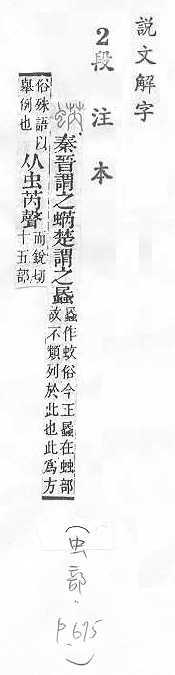 説文解字
2段注本
蜹 秦晉謂之蜹楚謂之蟁
蟁作蚊俗今正蟁在䖵部
故不類列於此也此爲方
俗殊語以
舉例也
从虫芮聲
而銳切
十五部
(虫部.p.675)